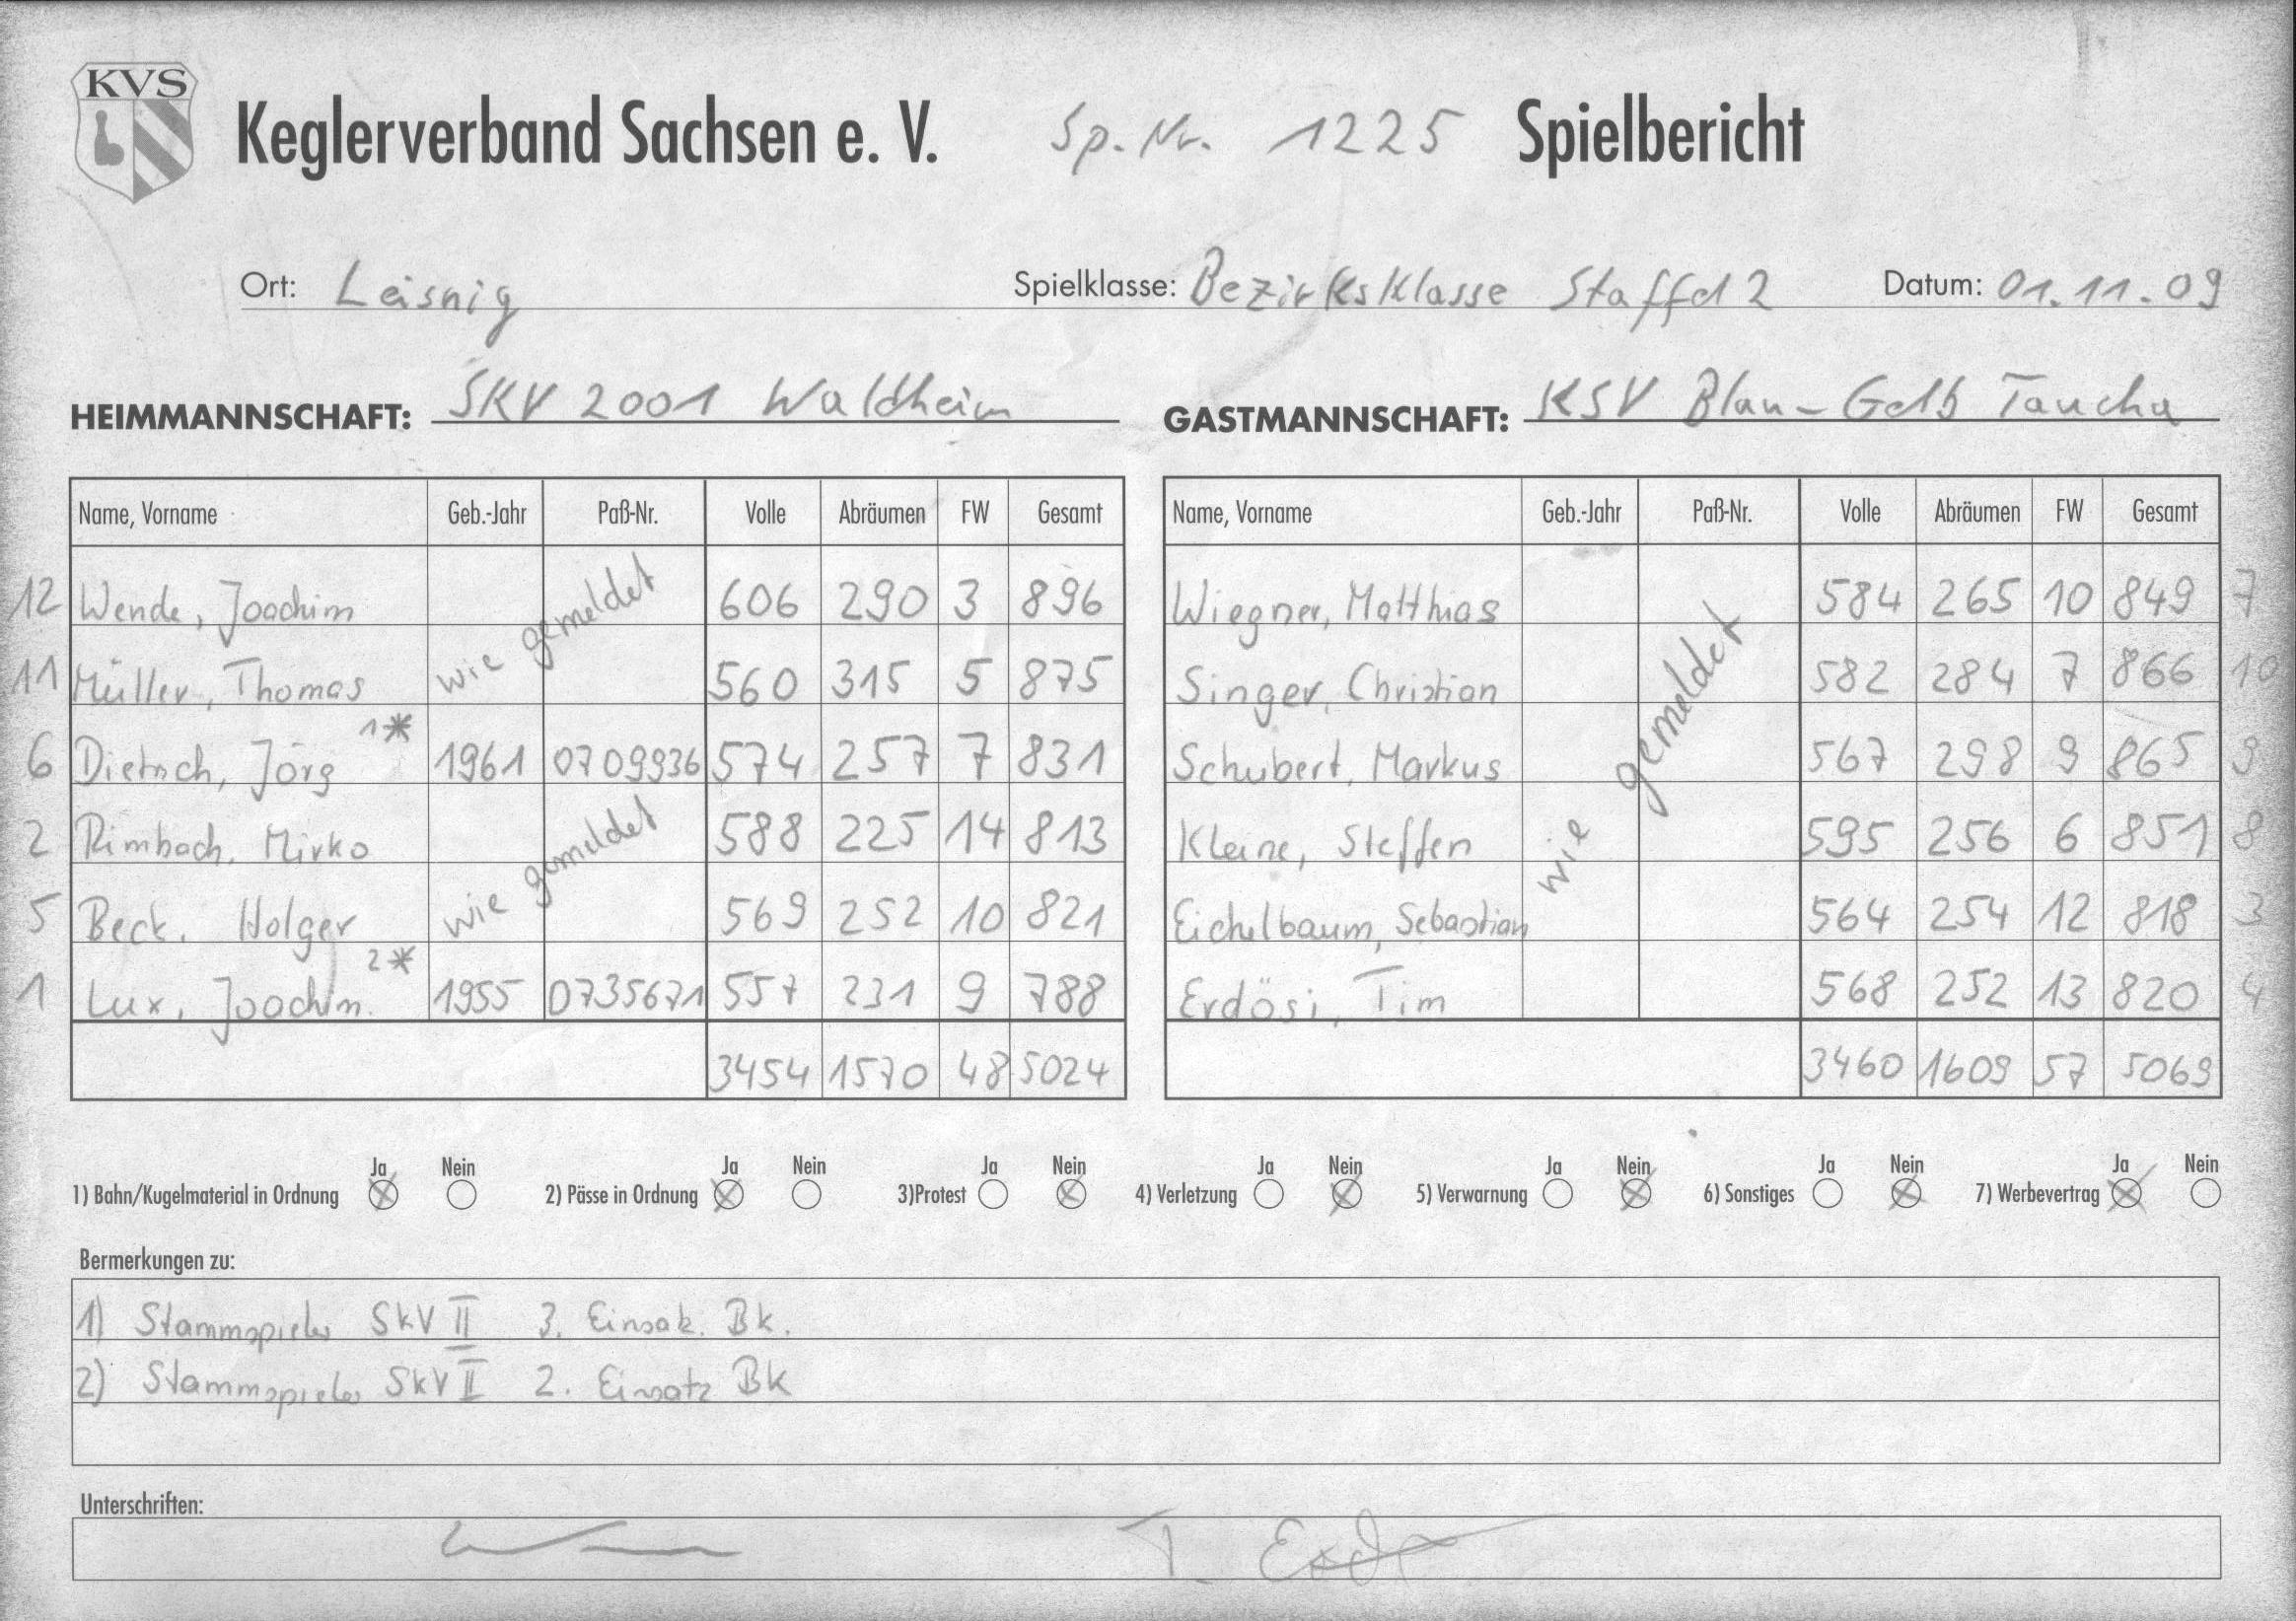 KVS
Keglerverband Sachsen e. V. Sp. Nr. 1225 Spielbericht
Ort: Leisnig Spielklasse: Bezirksklasse Staffel 2 Datum: 01.11.09
HEIMMANNSCHAFT: SKV 2001 Waldheim GASTMANNSCHAFT: KSV Blau-Gelb Taucha
Name, Vorname Geb.-Jahr Paß-Nr. Volle Abräumen FW Gesamt Name, Vorname Geb.-Jahr Paß-Nr. Volle Abräumen FW Gesamt
12 Wende, Joachim wie gemeldet 606 290 3 896 Wiegner, Matthias wie gemeldet 584 265 10 849 7
11 Müller, Thomas 560 315 5 875 Singer, Christian 582 284 7 866 10
6 Dietrich, Jörg 1* 1961 0709936 574 257 7 831 Schubert, Markus 567 298 9 865 9
2 Rimbach, Mirko wie gemeldet 588 225 14 813 Kleine, Steffen 595 256 6 851 8
5 Beck, Holger 569 252 10 821 Eichelbaum, Sebastian 564 254 12 818 3
1 Lux, Joachim 2* 1955 0735671 557 231 9 788 Erdösi, Tim 568 252 13 820 4
3454 1570 48 5024 3460 1609 57 5069
1) Bahn/Kugelmaterial in Ordnung Ja Nein 2) Pässe in Ordnung Ja Nein 3)Protest Ja Nein 4) Verletzung Ja Nein 5) Verwarnung Ja Nein 6) Sonstiges Ja Nein 7) Werbevertrag Ja Nein
Bermerkungen zu:
1) Stammspieler SKV II 3. Einsatz. Bk.
2) Stammspieler SKV II 2. Einsatz Bk
Unterschriften:
T.